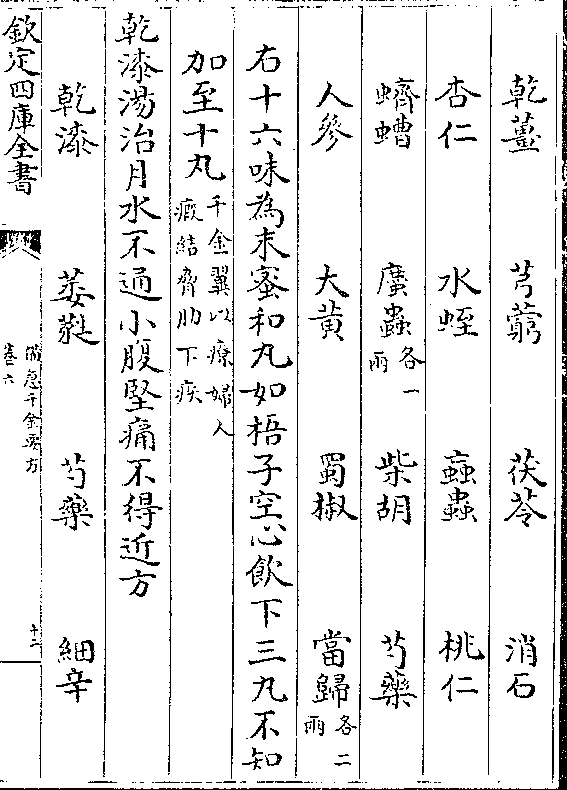 乾薑 芎藭 茯苓 消石
杏仁 水蛭 蝱蟲 桃仁
蠐螬 䗪蟲各一兩 柴胡 芍藥
人參 大黄 蜀椒 當歸各二兩
右十六味為末蜜和丸如梧子空心飲下三丸不知
加至十丸千金翼以療婦人瘕結脅肋下疾
乾漆湯治月水不通小腹堅痛不得近方
乾漆 萎蕤 芍藥 細辛
欽定四庫全書
備急千金要方
卷六
十二